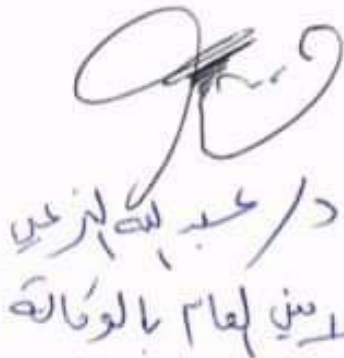 د/ عبد الله الزعبي
الامين العام بالوكالة